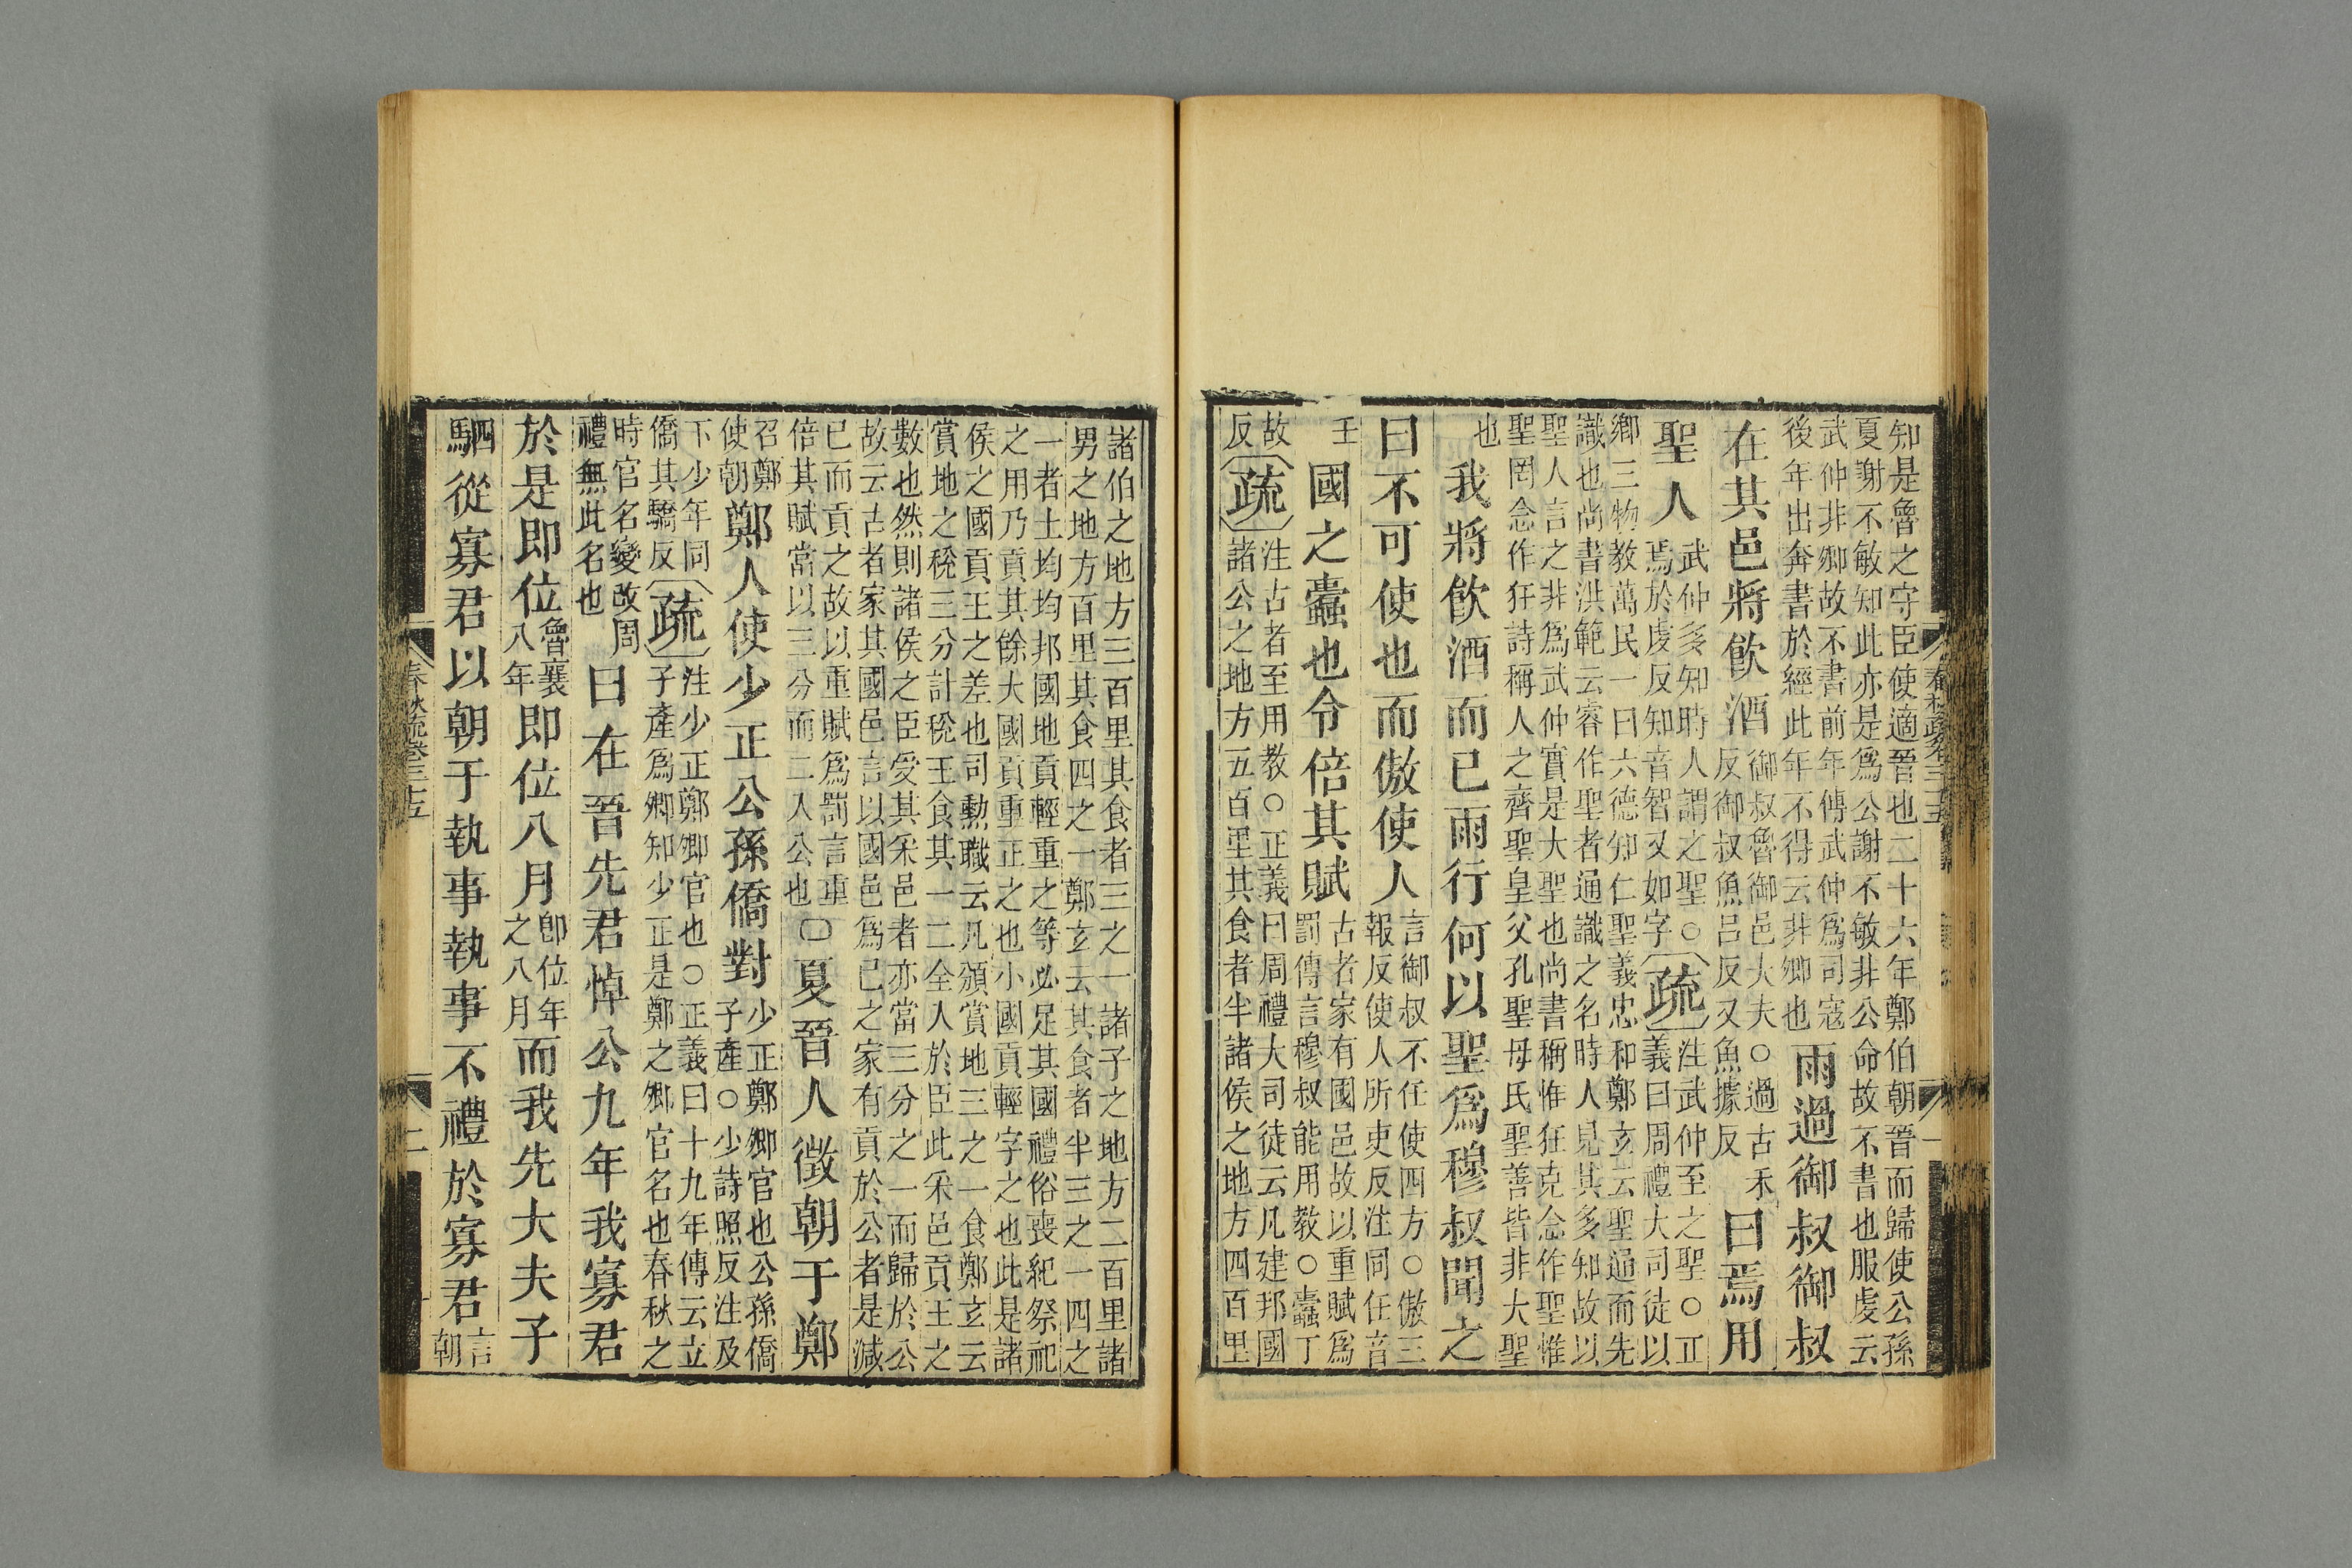 知是魯之守臣使適晉也二十六年鄭伯朝晉而歸使公孫
夏謝不敏知此亦是爲公謝不敏非公命故不書也服虔云
武仲非卿故不書前年傳武仲爲司寇
後年出奔書於經此年不得云非卿也
雨過御叔御叔
在其邑將飮酒
御叔魯御邑大夫○過古禾
反御叔魚呂反又魚據反
曰焉用
聖人
武仲多知時人謂之聖○
焉於虔反知音智又如字
疏
注武仲至之聖○正
義曰周禮大司徒以
鄉三物教萬民一曰六德知仁聖義忠和鄭玄云聖通而先
識也尚書洪範云睿作聖者通識之名時人見其多知故以
聖人言之非爲武仲實是大聖也尚書稱惟狂克念作聖惟
聖罔念作狂詩稱人之齊聖皇父孔聖母氏聖善皆非大聖
也
我將飮酒而已雨行何以聖爲穆叔聞之
曰不可使也而傲使人
言御叔不任使四方○傲三
報反使人所吏反注同任音
壬
國之蠹也令倍其賦
古者家有國邑故以重賦爲
罰傳言穆叔能用教○蠹丁
故
反
疏
注古者至用教○正義曰周禮大司徒云凡建邦國
諸公之地方五百里其食者半諸侯之地方四百里
諸伯之地方三百里其食者三之一諸子之地方二百里諸
男之地方百里其食四之一鄭玄云其食者半三之一四之
一者土均均邦國地貢輕重之等必足其國禮俗喪紀祭祀
之用乃貢其餘大國貢重正之也小國貢輕字之也此是諸
侯之國貢王之差也司勲職云凡頒賞地三之一食鄭玄云
賞地之稅三分計稅王食其一二全人於臣此采邑貢王之
數也然則諸侯之臣受其采邑者亦當三分之一而歸於公
故云古者家其國邑言以國邑爲己之家有貢於公者是減
已而貢之故以重賦爲罰言重
倍其賦當以三分而二人公也
○夏晉人徵朝于鄭
召鄭
使朝
鄭人使少正公孫僑對
少正鄭卿官也公孫僑
子產○少詩照反注及
下少年同
僑其驕反
疏
注少正鄭卿官也○正義曰十九年傳云立
子產爲卿知少正是鄭之卿官名也春秋之
時官名變改周
禮無此名也
曰在晉先君悼公九年我寡君
於是即位
魯襄
八年
即位八月
卽位年
之八月
而我先大夫子
駟從寡君以朝于執事執事不禮於寡君
言
朝
春秋疏卷三十五
二